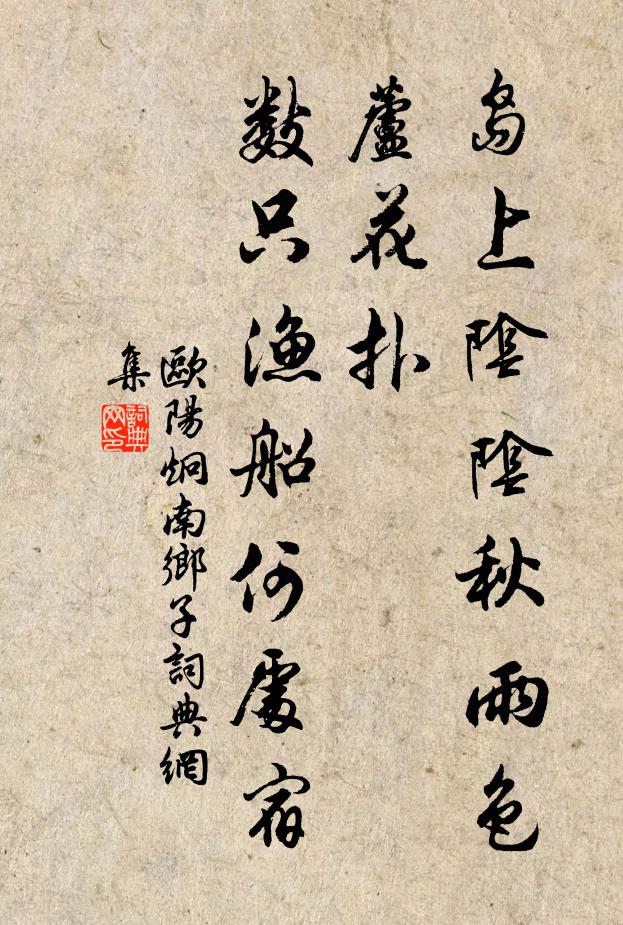 島上陰陰秋雨色
蘆花扑
数只漁船何處宿
歐陽炯南鄉子詞典網
集
詞典
网印